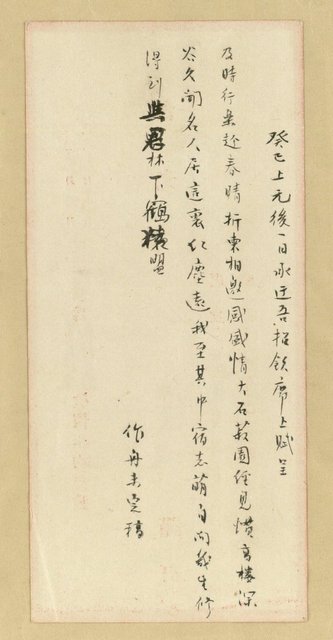 癸巳上元後一日承迂吾招飲席上賦呈
及時行樂趁春晴折柬相邀感盛情大石菽園經見慣高樓深
谷久聞名人居這裏仁塵遠我至其中宿志萌自問幾生修
得到與君林下鶴猿盟
作舟未定稿